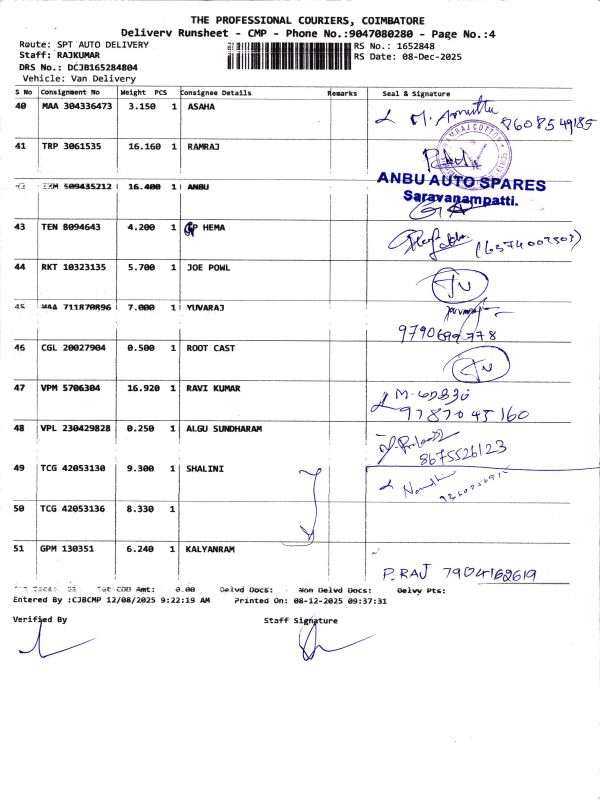 THE PROFESSIONAL COURIERS, COIMBATORE
Delivery Runsheet - CMP - Phone No.:9047080280 - Page No.:4
Route: SPT AUTO DELIVERY
RS No.: 1652848
Staff: RAJKUMAR
RS Date: 08-Dec-2025
DRS No.: DCJB165284804
Vehicle: Van Delivery
S No Consignment No Weight PCS Consignee Details Remarks Seal & Signature
40 MAA 304336473 3.150 1 ASAHA
8608549185
41 TRP 3061535 16.160 1 RAMRAJ
RAMRAJ COTTON
42 509435212 16.400 1 ANBU
ANBU AUTO SPARES
Saravanampatti.
43 TEN 8094643 4.200 1 GP HEMA
44 RKT 10323135 5.700 1 JOE POWL
45 MAA 711870896 7.000 1 YUVARAJ
9790699778
46 CGL 20027904 0.500 1 ROOT CAST
47 VPM 5706304 16.920 1 RAVI KUMAR
9787045160
48 VPL 230429828 0.250 1 ALGU SUNDHARAM
8675526123
49 TCG 42053130 9.300 1 SHALINI
50 TCG 42053136 8.330 1
51 GPM 130351 6.240 1 KALYANRAM
P.RAJ 7904162619
Tot COD Amt: 0.00 Delvd Docs: Non Delvd Docs: Delvy Pts:
Entered By :CJBCMP 12/08/2025 9:22:19 AM Printed On: 08-12-2025 09:37:31
Verified By Staff Signature